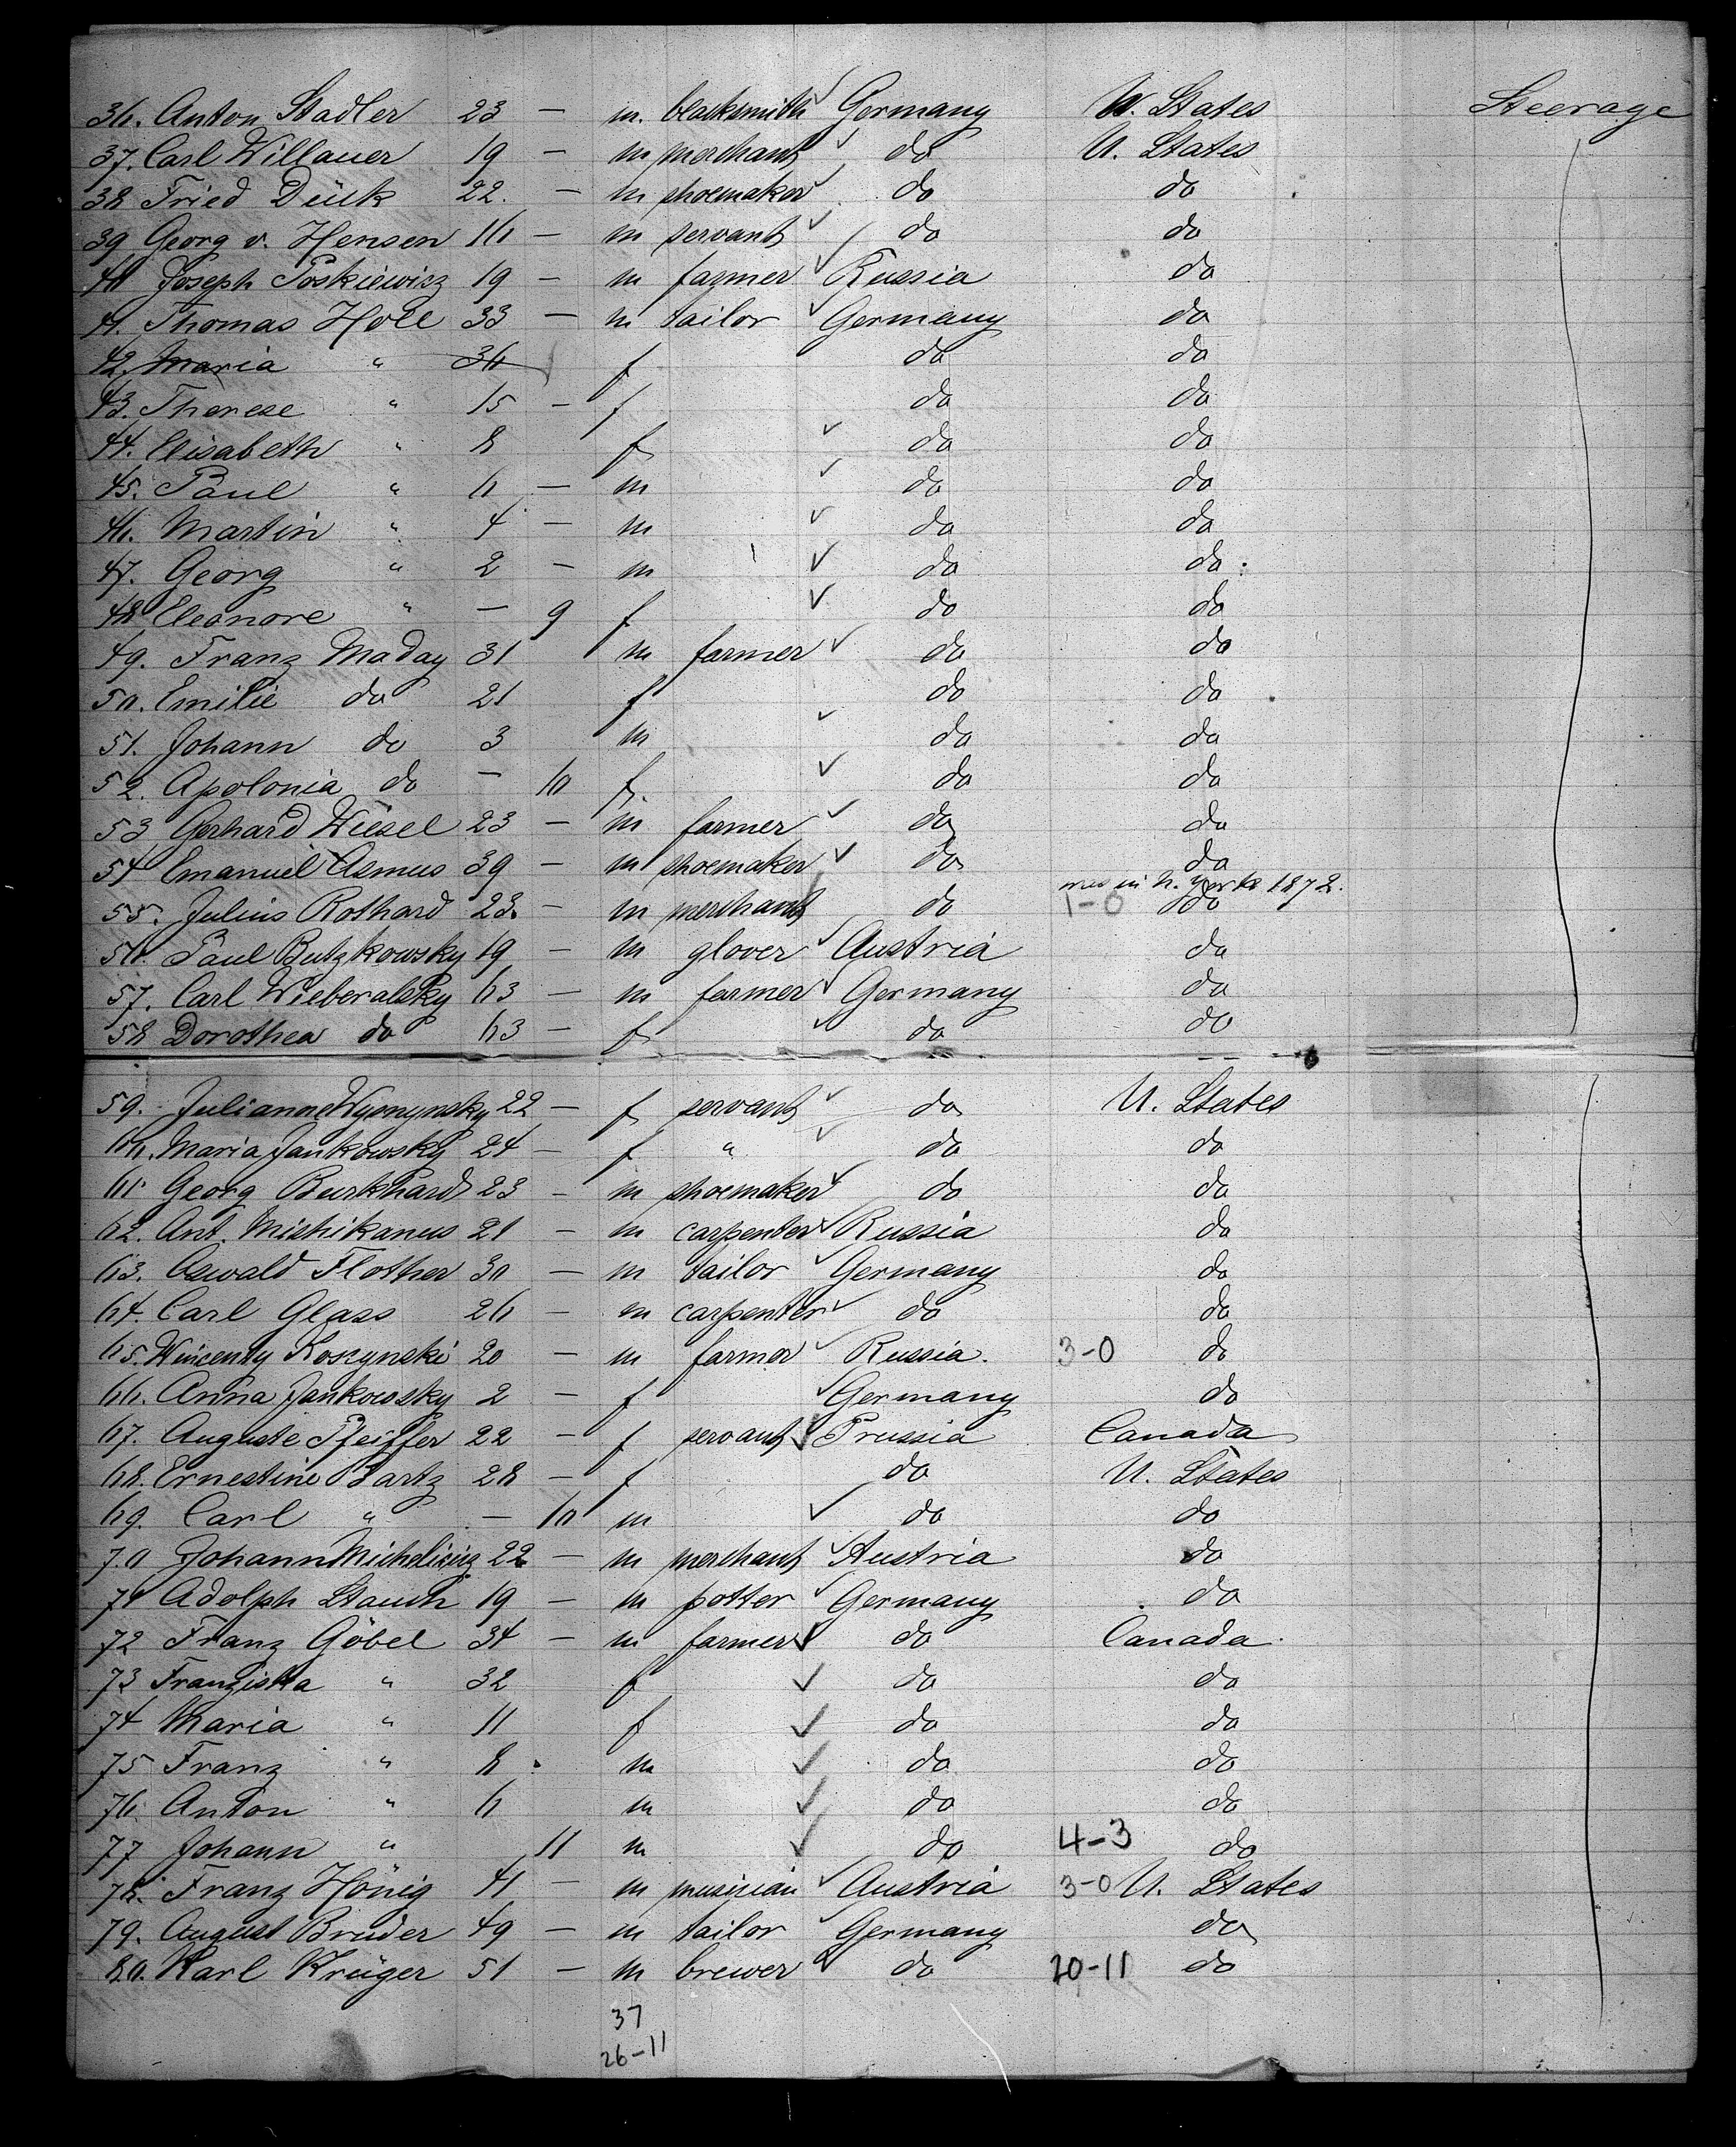 36. Anton Stadler 23 — m. blacksmith ✓ Germany U. States Steerage
37. Carl Willauer 19 — m merchant ✓ do U. States
38 Fried Dück 22. — m shoemaker ✓ do do
39 Georg v. Hensen 16 — m servant ✓ do do
40 Joseph Poskiewicz 19 — m farmer ✓ Russia do
41. Thomas Holl 33 — m tailor ✓ Germany do
42. Maria " 36 f do do
43. Therese " 15 — f do do
44. Elisabeth " 8 f ✓ do do
45. Paul " 6 — m ✓ do do
46. Martin " 4 — m ✓ do do
47. Georg " 2 — m ✓ do do
48 Eleonore " — 9 f ✓ do do
49. Franz Maday 31 m farmer ✓ do do
50. Emilie do 21 f do do
51. Johann do 3 m ✓ do do
52. Apolonia do — 10 f. ✓ do do
53 Gerhard Wiesel 23 — m farmer ✓ do do
54 Emanuel Asmus 39 — m shoemaker ✓ do do
was in N. York 1872.
55. Julius Rothard 23. — m merchant do 1-0 do
56. Paul Butzkowsky 19 — m glover ✓ Austria do
57. Carl Wieberalsky 63 — m farmer ✓ Germany do
58 Dorothea do 63 — f ✓ do do
59. Julianne 22 — f servant ✓ do U. States
60. Maria Jankowsky 24 — f " ✓ do do
61 Georg Burkhard 23 — m shoemaker ✓ do do
62. Ant. Mishikanus 21 — m carpenter ✓ Russia do
63. Oswald Flother 30 — m tailor ✓ Germany do
64. Carl Glass 26 — m carpenter ✓ do do
65. Wincenty Koszynski 20 — m farmer ✓ Russia. 3-0 do
66. Anna Jankowsky 2 — f ✓ Germany do
67. Auguste Pfeiffer 22 — f servant ✓ Prussia Canada
68. Ernestine Bartz 28 — f do U. States
69. Carl " — 10 m ✓ do do
70 Johann 22 — m merchant ✓ Austria do
71 Adolph Stauch 19 — m potter ✓ Germany do
72 Franz Göbel 34 — m farmer ✓ do Canada
73 Franziska " 32 f ✓ do do
74 Maria " 11 f ✓ do do
75 Franz " 8 m ✓ do do
76. Anton " 6 m ✓ do do
77 Johann " 11 m ✓ do 4-3 do
78. Franz Hönig 41 — m musician ✓ Austria 3-0 U. States
79. August Bruder 49 — m tailor ✓ Germany do
80. Karl Krüger 51 — m brewer ✓ do 20-11 do
37
26-11